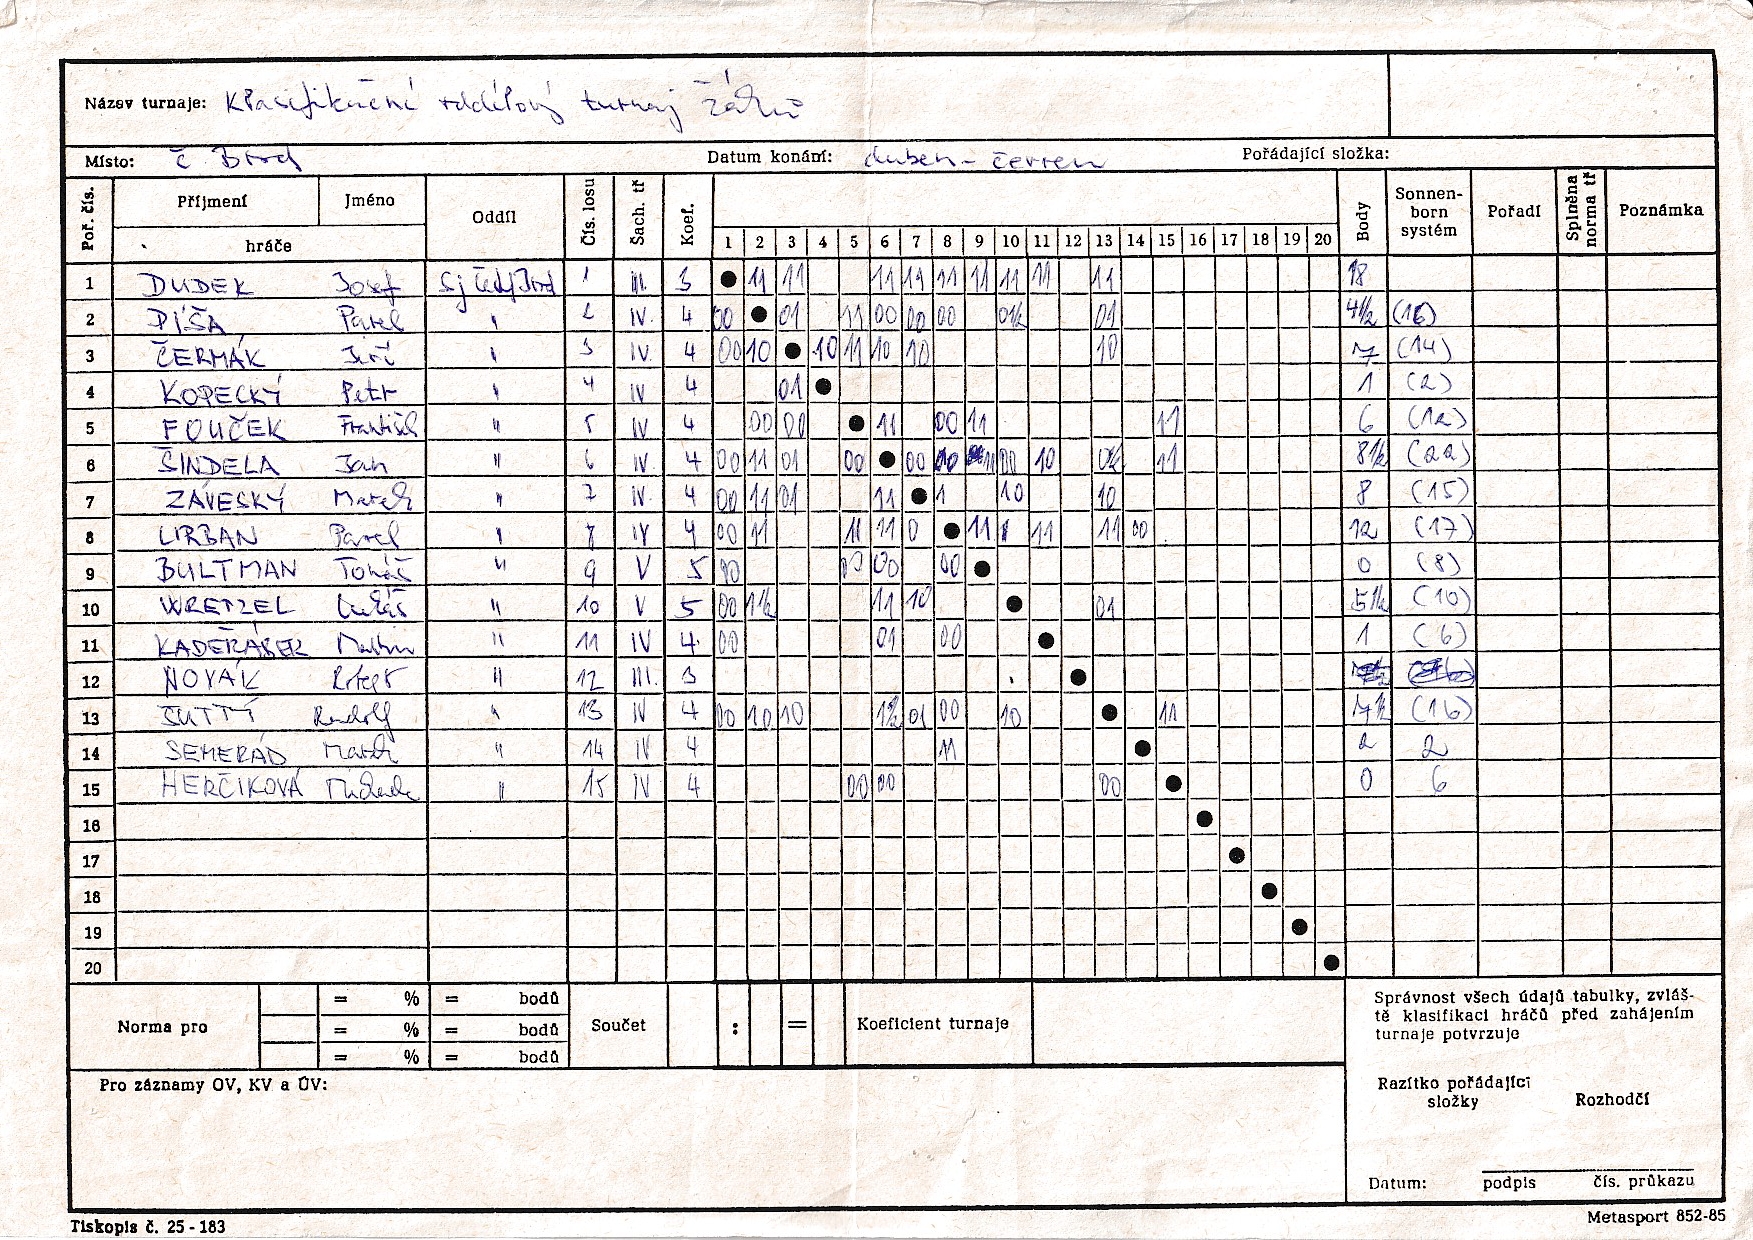 Název turnaje: Klasifikační oddílový turnaj žáků
Místo: Č Brod Datum konání: duben - červen Pořádající složka:
Poř. čís. Příjmení Jméno Oddíl Čís. losu Šach. tř Koef. Body Sonnen-born systém Pořadí Splněna norma tř Poznámka
hráče 1 2 3 4 5 6 7 8 9 10 11 12 13 14 15 16 17 18 19 20
1 DUDEK Josef Sj Český Brod 1 III. 3 ● 11 11 11 11 11 11 11 11 11 18
2 PÍŠA Pavel " 2 IV. 4 00 ● 01 11 00 00 00 0½ 01 4½ (16)
3 ČERMÁK Jiří " 3 IV. 4 00 10 ● 10 11 10 10 10 7 (14)
4 KOPECKÝ Petr " 4 IV 4 01 ● 1 (2)
5 FOUČEK František " 5 IV 4 00 00 ● 11 00 11 11 6 (12)
6 ŠINDELA Jan " 6 IV 4 00 11 01 00 ● 00 00 11 00 10 0½ 11 8½ (22)
7 ZÁVESKÝ Marek " 7 IV. 4 00 11 01 11 ● 1 10 10 8 (15)
8 URBAN Pavel " 8 IV 4 00 11 11 11 0 ● 11 11 11 00 12 (17)
9 BULTMAN Tomáš " 9 V 5 00 00 00 00 ● 0 (8)
10 WRETZEL Lukáš " 10 V 5 00 1½ 11 10 ● 01 5½ (10)
11 KADEŘÁBEK Martin " 11 IV 4 00 01 00 ● 1 (6)
12 NOVÁK " 12 III. 3 ●
13 ŠUTTÝ Rudolf " 13 IV 4 00 10 10 1½ 01 00 10 ● 11 7½ (16)
14 SEMERÁD Marek " 14 IV 4 11 ● 2 2
15 HERČIKOVÁ Michaela " 15 IV 4 00 00 00 ● 0 6
16 ●
17 ●
18 ●
19 ●
20 ●
Norma pro = % = bodů Součet : = Koeficient turnaje
= % = bodů
= % = bodů
Správnost všech údajů tabulky, zvláš-
tě klasifikaci hráčů před zahájením
turnaje potvrzuje
Pro záznamy OV, KV a ÚV:
Razítko pořádající
složky Rozhodčí
Datum: podpis čís. průkazu
Tiskopis č. 25 - 183 Metasport 852-85